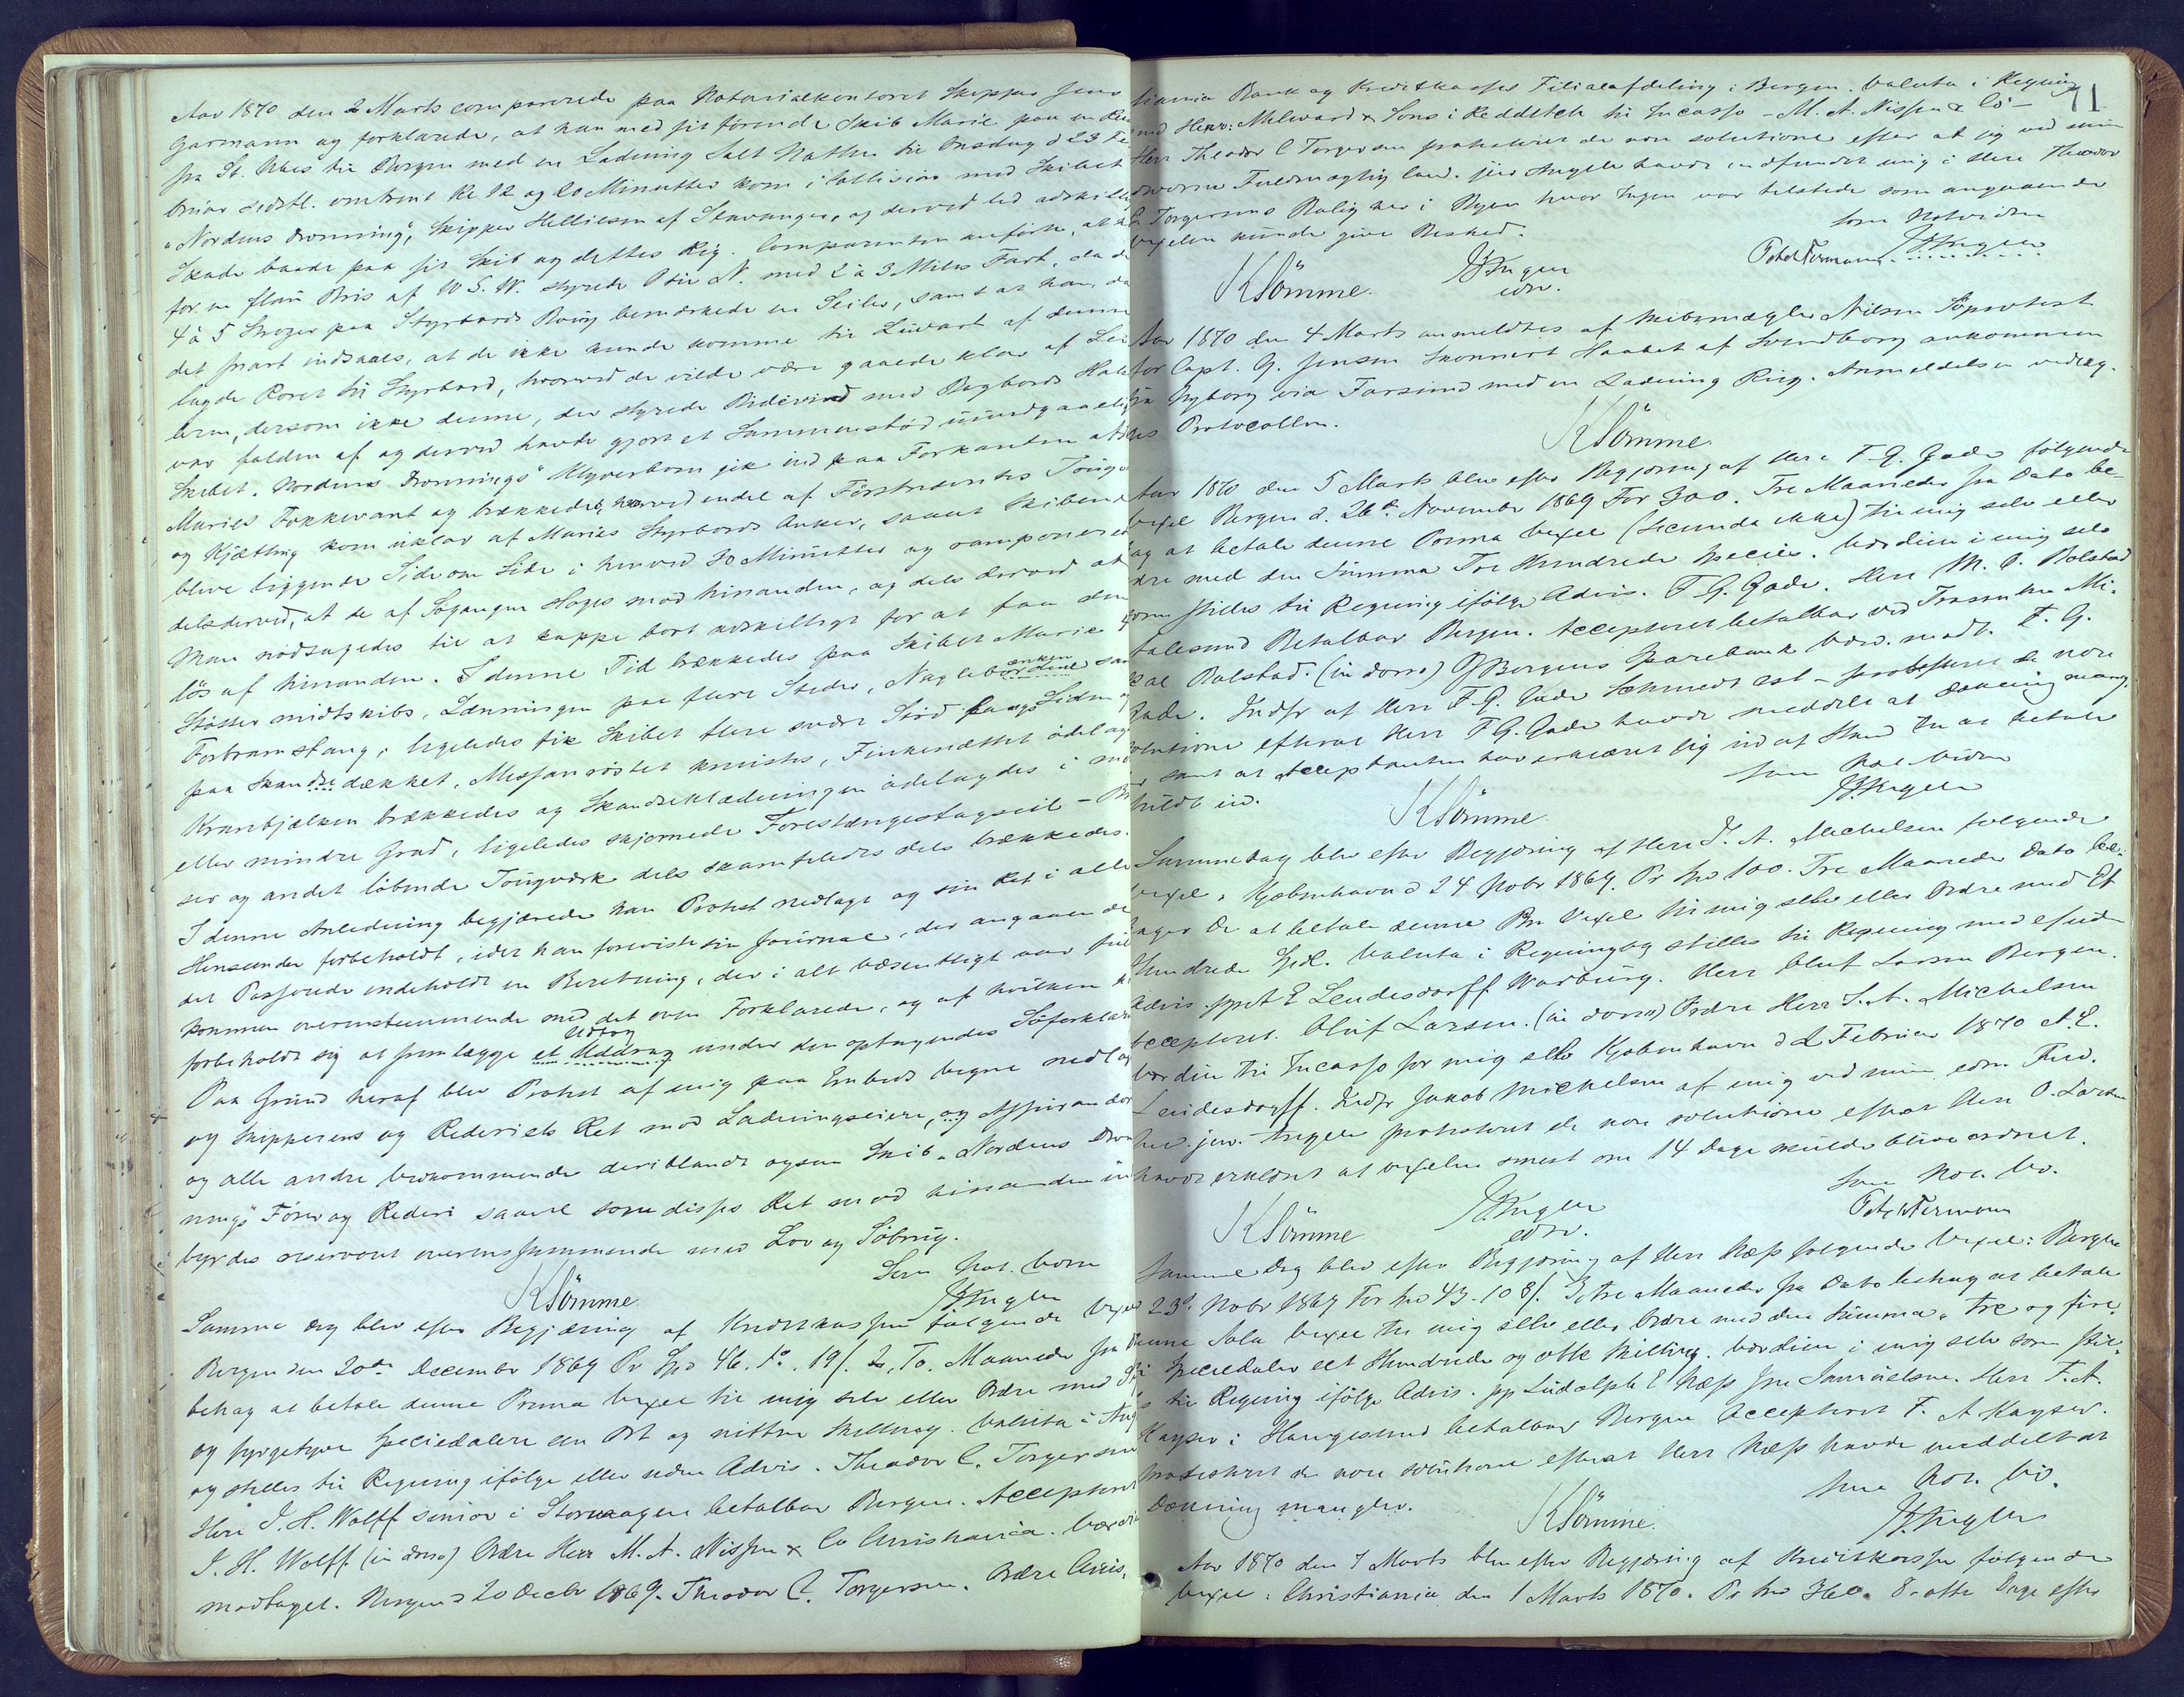 Aar 1870 den 2 Marts comparerede paa Notarialkontoret Skipper Jens
Garmann og forklarede, at han med sit förende Skib Marie paa en Rei
fra St. Ubes til Bergen med en Ladning Salt Natten til Onsdag d 23 Fe
bruar sidstl. omtrent Kl. 12 og 20 Minutter kom i Collision med Skibet
"Nordens Dronning", Skipper Helliesen af Stavanger, og derved led adskillig
Skade baade paa sit Skib og dettes Rig. Comparenten anförte, at
for en flau Bris af W.S.W. styrede Ostie N. med 2 à 3 Miles Fart, da
4 à 5 Streger paa Styrbords Boug bemærkede en Seiler, samt at han, da
det snart indsaaes, at de ikke kunde komme til Luvart af denne
lagde Roret til Styrbord, hvorved de vilde være gaaede klar af Sei
leren, dersom ikke denne, der styrede Bidevind med Bagbords Hals
var falden af og derved havde gjort et Sammenstöd uundgaaeligt
Skibet "Nordens Dronnings" Klyverbom gik ind paa Forkanten af
Maries Fokkevant og brækkedes, hvorved endel af Förstnævntes Toug
og Kjætting kom uklar af Maries Styrbords Anker, samt Skibene
bleve liggende Side om Side i henved 30 Minutter og ramponered
delsderved, at de af Sögangen sloges mod hinanden, og dels derved at
Man nödsagedes til at kappe bort adskilligt for at faa dem
lös af hinanden. I denne Tid brækkedes paa Skibet Marie
Stötter midtskibs, Lænningen paa flere Steder, Naglebænken sam
Forbramstang; ligeledes fik Skibet flere svære Stöd langs Siden
paa Skandsedækket, Messanröstet knustes, Finkenættet ödelagdes
Kranbjælken brækkedes og Skandseklædningen ödelagdes i större
eller mindre Grad, ligeledes skjornede Forestængestagseil - Br
ser og andet löbende Tougværk dels skamfiledes dels brækkedes.
I denne Anledning begjærede han Protest nedlagt og sin Ret i alle
Henseender forbeholdt, idet han foreviste sin Journal, der angaaende
det Passerede indeholdt en Beretning, der i alt væsentligt var ful
kommen overenstemmende med det oven Forklarede, og af hvilken
forbeholdt sig at fremlægge et Udtog under den optagendes Söforklar
Paa Grund heraf blev Protest af mig paa Embeds vegne nedlagt
og Skipperens og Rederiets Ret mod Ladningseiere, og Assurandör
og alle andre vedkommende deriblandt ogsaa Skib "Nordens Dron
nings" Förer og Rederi saavel som disses Ret mod hinanden in
byrdes reserveret overensstemmende med Lov og Söbrug.
Som Not. Vorn
KSömme JJEngelsen
Samme Dag blev efter Begjæring af Kreditkassen fölgende Vexel
Bergen den 20de December 1869 Pr Spd 46. 1o. 19/. 2, To. Maaneder fra
behag at betale denne Prima Vexel til mig selv eller Ordre med
og fyrgetyve Speciedalere en Ort og nitten Skilling. Valuta i
og stilles til Regning ifölge eller uden Advis. Theodor C. Torgersen
Herr J. H. Wolff senior i Stormagen betalbar Bergen. Accepteret
J. H. Wolff (in dorso) Ordre Herr M. A. Nissen & Co Christiania. Værdi
modtaget. Bergen d 20 Decbr 1869. Theodor C. Torgersen. Ordre Chris,
71
tiania Bank og Kreditkasses Filialafdeling i Bergen. Valuta i Regning
med Herr: Milward & Sons i Redditch til Incasso - M. A. Nissen & Co -
Herr Theodor C Torgersen protesteret de non solutione efter at jeg ved min
edsvorne Fuldmægtig Cand. jur Angell havde indfundet mig i Herr Theodor
C. Torgersens Bolig her i Byen hvor Ingen var tilstede som angaaende
Vexelen kunde give Besked.
som Notvidne
KSömme. edsv. Peter Fermann
Aar 1870 den 4 Marts anmeldtes af Skibsmægler Nilsen Söprotest
for Capt. G. Jensen Skonnert Haabet af Svendborg ankommen
fra Nyborg via Farsund med en Ladning Rug. Anmeldelsen vedlæg.
ges Protocollen.
KSömme.
Aar 1870 den 5 Marts blev efter Begjæring af Herr F G. Gade fölgende
Vexel Bergen d. 26de November 1869 For 300. Tre Maaneder fra Dato be-
hag at betale denne Prima Vexel (Secunda ikke) til mig selv eller
Ordre med den Summa Tre Hundrede Species. Værdien i mig selv
som stilles til Regning ifölge Advis. F. G. Gade. Herr M. O. Rolstad
Aalesund Betalbar Bergen. Accepteret betalbar ved Trassenten Mi-
kal Rolstad. (in dorso) Bergens Sparebank Værd. modt. F. G.
Gade. Indfr af Herr F. G. Gade Schmedt est - protesteret de non
solutione efterat Herr F G. Gade havde meddelt at Dækning mang.
ler samt at Acceptanten har erklæret sig ud af Stand til at betale
fuldt ud.
som Not. Vidne
KSömme.
Sammedag blev efter Begjæring af Herr J. A. Michelsen fölgende
Vexel: Kjøbenhavn d 24 Nobr 1869. Pr Spd 100. Tre Maaneder Dato be-
hager De at betale denne Pr. Vexel til mig selv eller Ordre med Et
Hundrede Spdl. Valuta i Regning og stilles til Regning med efter
Advis. pp A E Lendesdorff Warburg. Herr Oluf Larsen Bergen.
Accepteret. Oluf Larsen. (in dorso) Ordre Herr J. A. Michelsen
Værdien til Incasso for mig selv Kjøbenhavn d 2 Februar 1870 A. E.
Lendesdorff. Indfr Jakob Michelsen af mig ved min edsv. Fuld.
Cand. jur. Angell protesteret de non solutione efterat Herr O. Larsen
havde erklæret at Vexelen senest om 14 Dage skulde blive ordnet.
som Not. Vi.
KSömme edsv. Peter Fermann
Samme Dag blev efter Begjæring af Herr Næss fölgende Vexel: Bergen
23d. Nobr 1869 For Spd 43. 108/. 3, tre Maaneder fra Dato behag at betale
denne Sola Vexel til mig selv eller Ordre med den Summa, tre og fire.
ti Speciedaler eet Hundrede og otte Skilling. Værdien i mig selv som stil-
les til Regning ifölge Advis. pp Ludolph E Næss Jne Samuelsen. Herr F. A.
Kayser i Haugesund betalbar Bergen Accepteret F. A Kayser.
protesteret de non solutione efterat Herr Næss havde meddelt at
Dækning mangler.
som Not. Vid.
KSömme.
Aar 1870 den 7 Marts blev efter Begjæring af Kreditkassen fölgende
Vexel: Christiania den 1 Marts 1870. Pr Spd 360. 8 - otte Dage efter